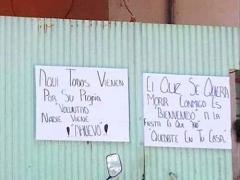 AQUI TODOS VIENEN
POR SU PROPIA
"VOLUNTAD"
NADIE VIENE
¡"A HUEVO"!
EL QUE SE QUIERA
MORIR CONMIGO ES
"BIENVENIDO" A LA
FIESTA EL QUE "NO"
"QUEDATE EN TU CASA"